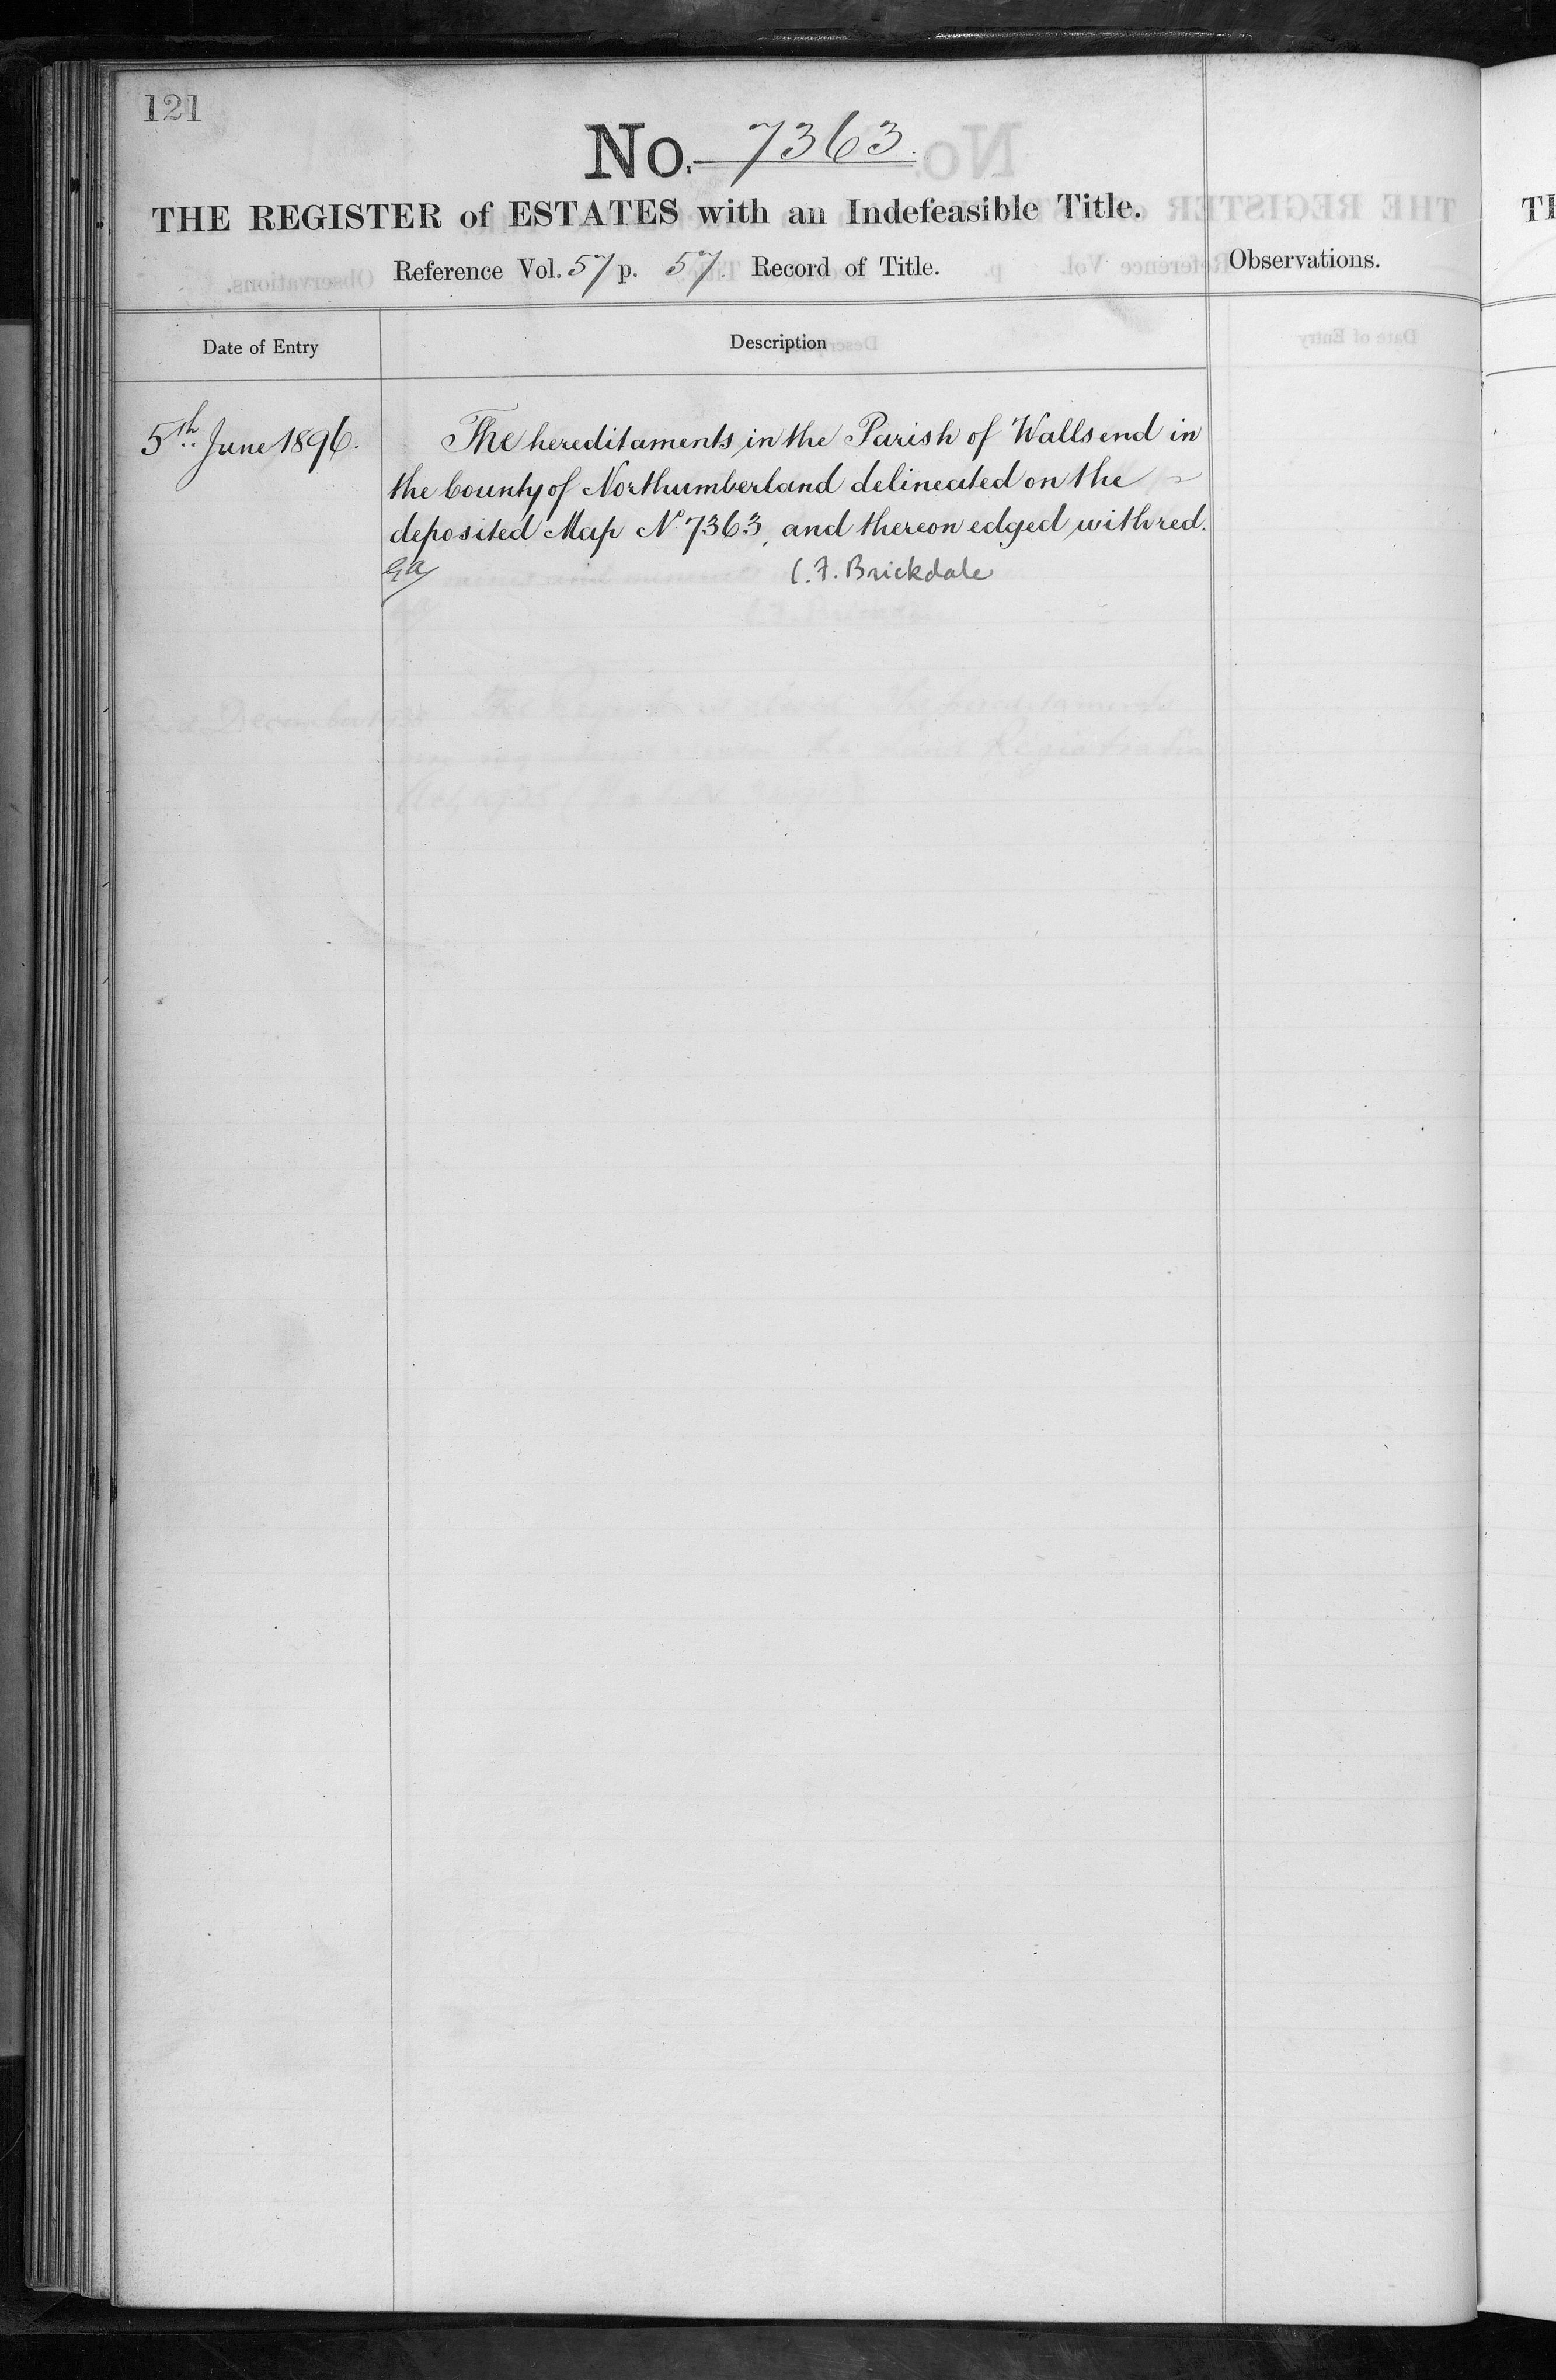 121
No. 7363.
THE REGISTER of ESTATES with an Indefeasible Title.
Reference Vol. 57 p. 57. Record of Title.
Observations.
Date of Entry
Description
5th June 1896.
The hereditaments in the Parish of Wallsend in
the County of Northumberland delineated on the
deposited Map No 7363, and thereon edged with red.
C.F. Brickdale